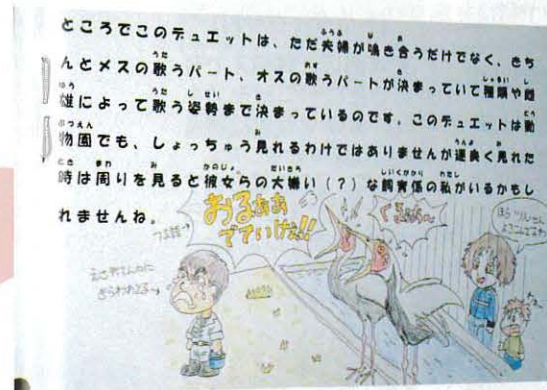 ところでこのデュエットは、ただ夫婦が鳴き合うだけでなく、きち
んとメスの歌うパート、オスの歌うパートが決まっていて種類や雌
雄によって歌う姿勢まで決まっているのです。このデュエットは動
物園でも、しょっちゅう見れるわけではありませんが運良く見れた
時は周りを見ると彼女らの大嫌い（？）な飼育係の私がいるかもし
れませんね。
おるぁぁ
でていけぇ!!
つる語→
えさあげてんのに
きらわれてる→
ぐるるぁぁ〜
ほら ツルさん
よろこんでるわ